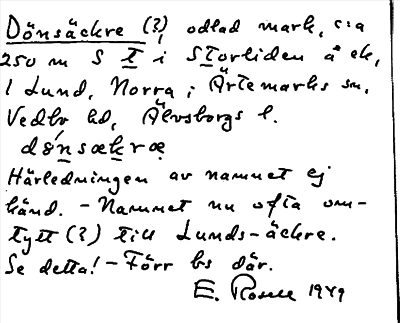 Dönsäckre (?), odlad mark, c:a
250 m S t i Storliden å ek,
1 Lund, Norra, i Ärtemarks sn,
Vedbo hd, Älvsborgs l.
dǿnsækræ
Härledningen av namnet ej
känd. – Namnet nu ofta om-
tytt (?) till Lunds-äckre.
Se detta! – Förr bs där.
E. Rosell 1949